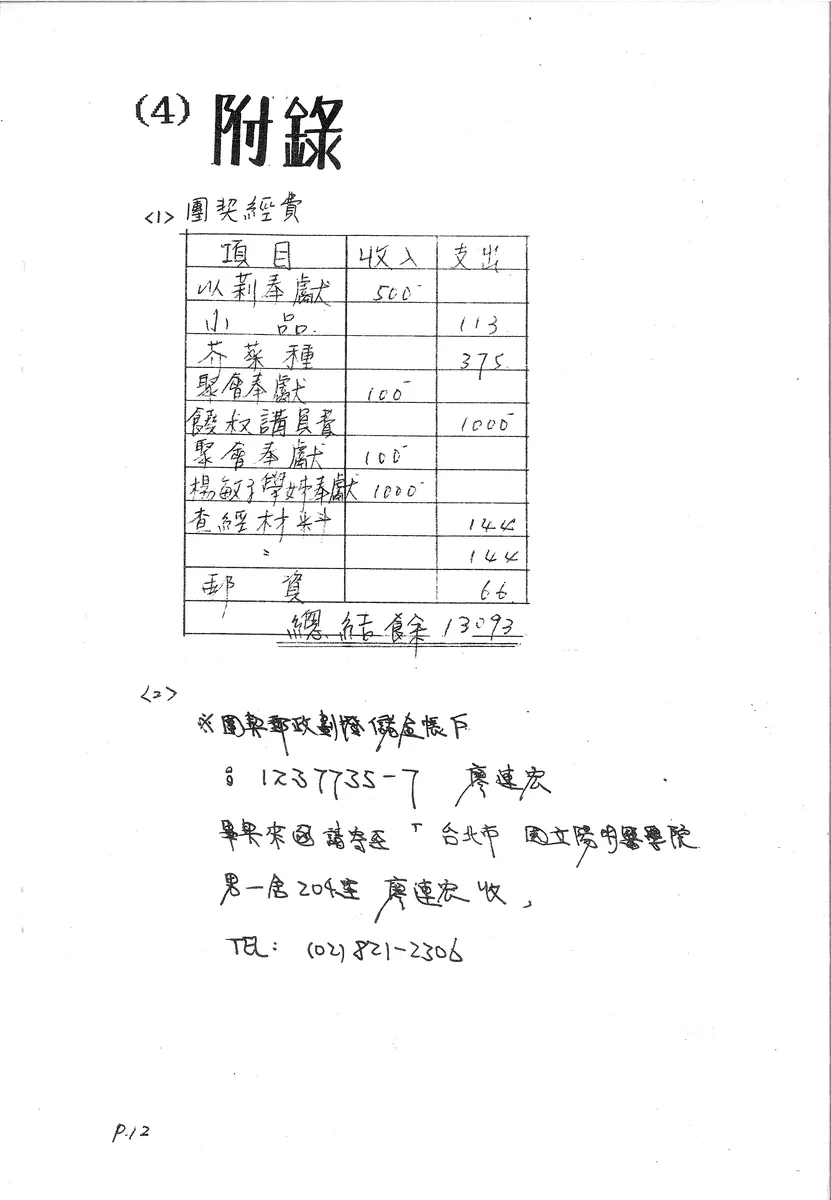 (4) 附錄
<1> 團契經費
項目 收入 支出
以莉奉獻 500
小品 113
芥菜種 375
聚會奉獻 100
饒叔講員費 1000
聚會奉獻 100
楊敏子學姊奉獻 1000
查經材料 144
〃 144
郵資 66
總結餘 13093
<2>
※團契郵政劃撥儲金帳戶
: 1237735-7 廖連宏
來函請寄至「台北市 國立陽明醫學院
男一舍204室 廖連宏收」
TEL: (02)821-2306
P.12